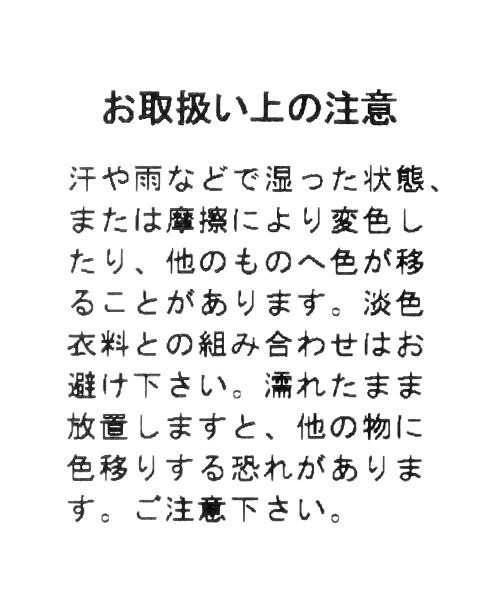 お取扱い上の注意
汗や雨などで湿った状態、
または摩擦により変色し
たり、他のものへ色が移
ることがあります。淡色
衣料との組み合わせはお
避け下さい。濡れたまま
放置しますと、他の物に
色移りする恐れがありま
す。ご注意下さい。